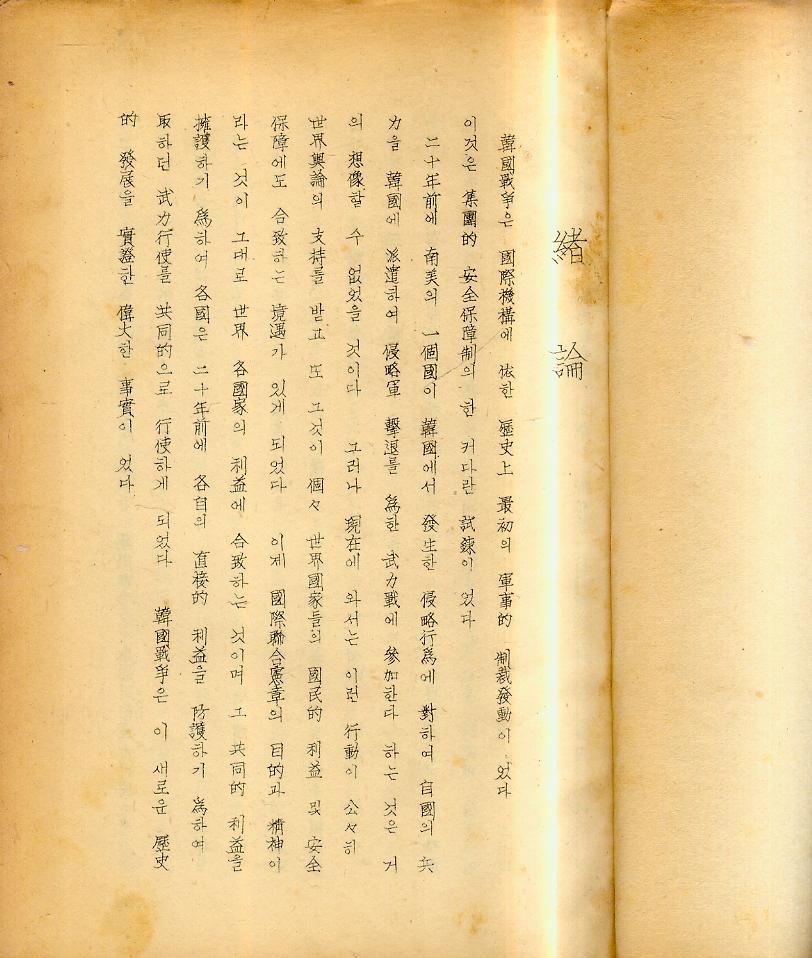 緖論
韓國戰爭은 國際機構에 依한 歷史上 最初의 軍事的 制裁發動이 었다
이것은 集團的 安全保障制의 한 커다란 試鍊이 었다
二十年前에 南美의 一個國이 韓國에서 發生한 侵略行爲에 對하여 自國의 兵
力을 韓國에 派遣하여 侵略軍 擊退를 爲한 武力戰에 參加한다 하는 것은 거
의 想像할 수 없었을 것이다 그러나 現在에 와서는 이런 行動이 公々히
世界輿論의 支持를 받고 또 그것이 個々 世界國家들의 國民的 利益 및 安全
保障에도 合致하는 境遇가 있게 되었다 이제 國際聯合憲章의 目的과 精神이
라는 것이 그대로 世界 各國家의 利益에 合致하는 것이며 그 共同的 利益을
擁護하기 爲하여 各國은 二十年前에 各自의 直接的 利益을 防護하기 爲하여
取하던 武力行使를 共同的으로 行使하게 되었다 韓國戰爭은 이 새로운 歷史
的 發展을 實證한 偉大한 事實이 었다